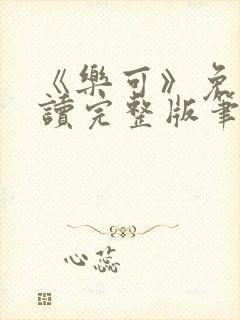 《樂可》免
讀完整版筆
心蕊